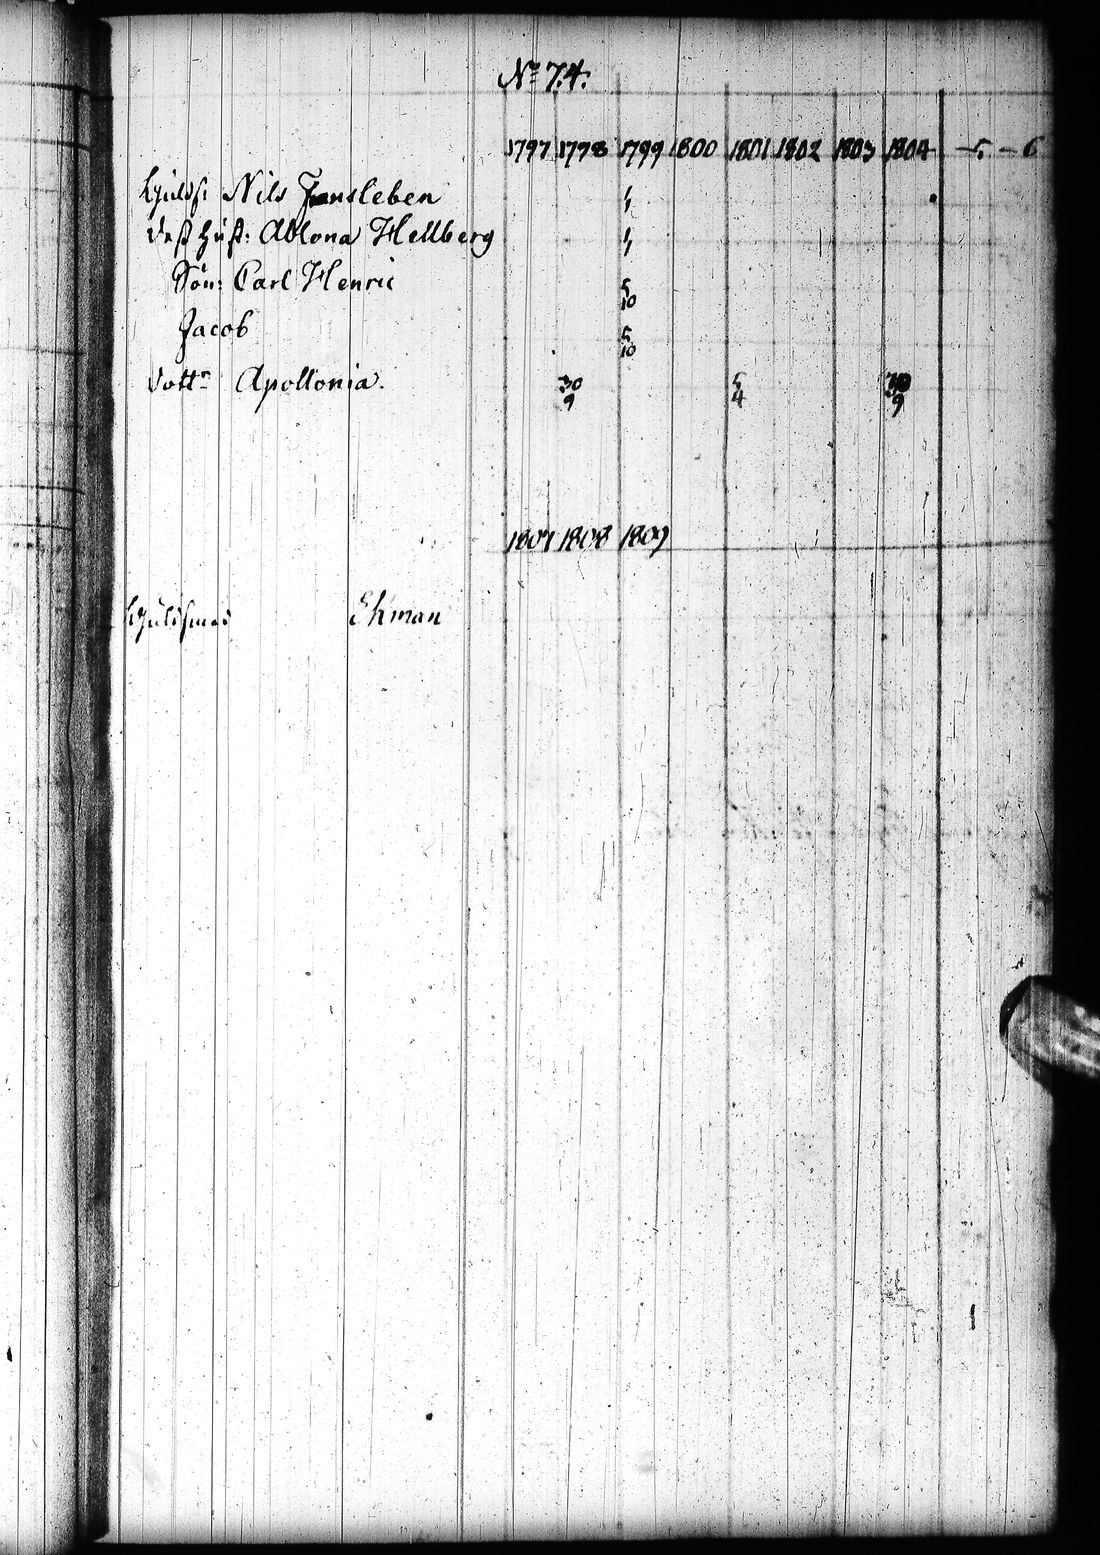 No 74.
1797 1798 1799 1800 1801 1802 1803 1804 — 5. — 6
Guldsm: Nils Fansleben 1/1
Dess Hust: Ablona Hellberg 1/1
Son: Carl Henric 5/10
Jacob 5/10
Dottr Apollonia. 30/9 5/4 30/9
1807 1808 1809
Guldsmed Ekman